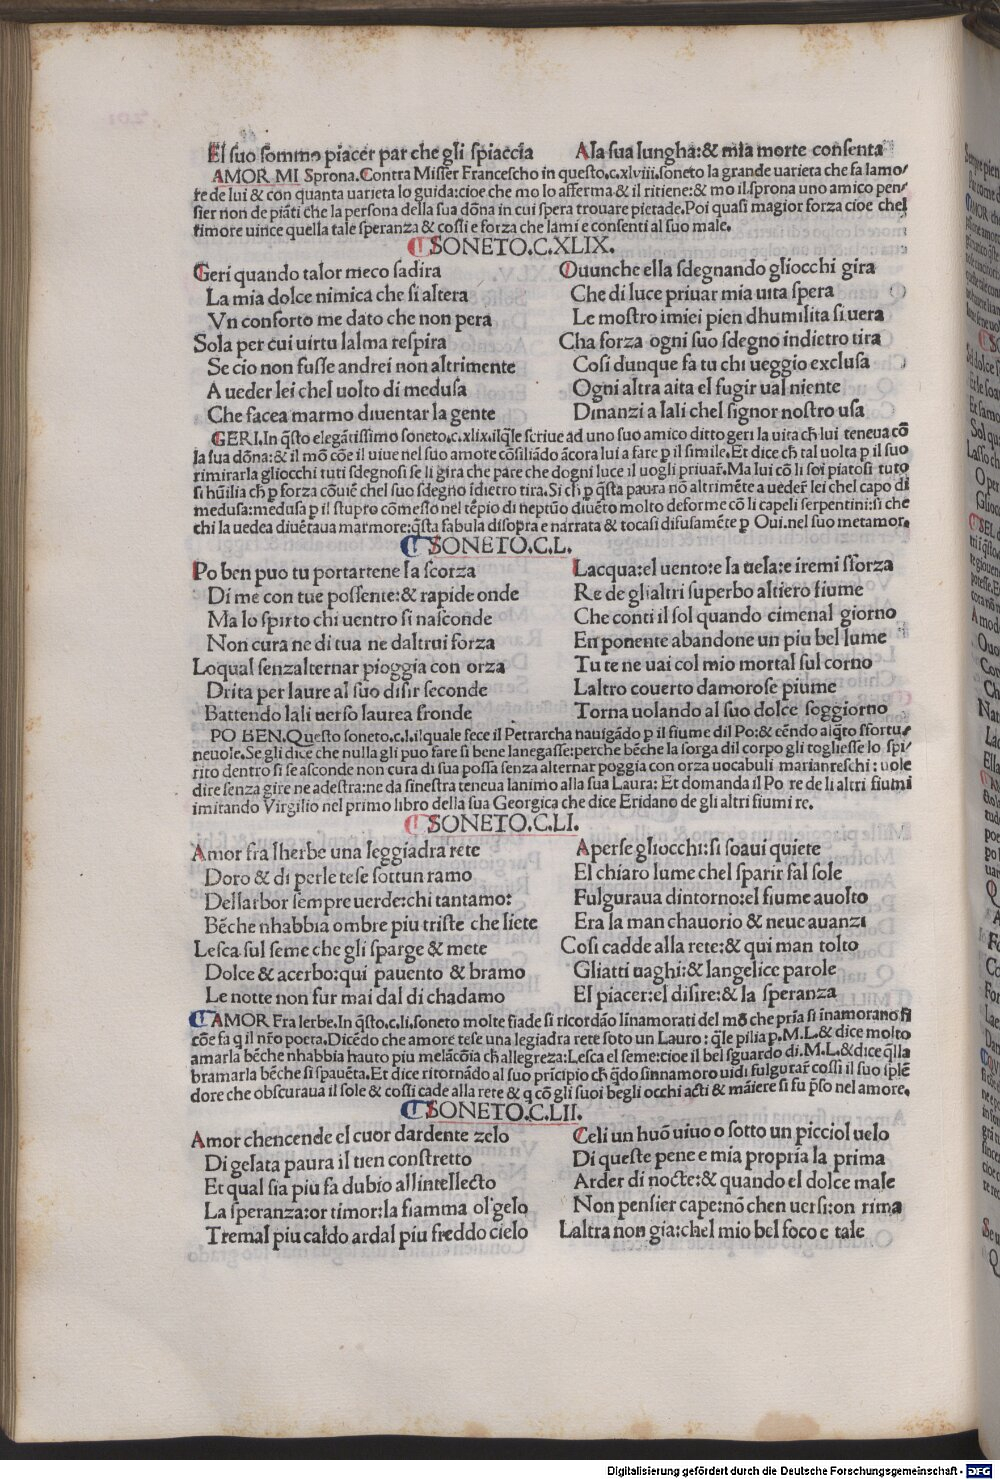 El suo sommo piacer par che gli spiaccia
A la sua lungha:& mia morte consenta
AMOR MI Sprona.Contra Misser Francescho in questo.c.xlviii.soneto la grande uarieta che fa lamo/
re de lui & con quanta uarieta lo guida:cioe che mo lo afferma & il ritiene:& mo il sprona uno amico pen/
sier non de piãti che la persona della sua dõna in cui spera trouare pietade.Poi quasi magior forza cioe chel
timore uince quella tale speranza & cossi e forza che lami e consenti al suo male.
SONETO.C.XLIX.
Geri quando talor meco sadira
La mia dolce nimica che si altera
Vn conforto me dato che non pera
Sola per cui uirtu lalma respira
Se cio non fusse andrei non altrimente
A ueder lei chel uolto di medusa
Che facea marmo diuentar la gente
Ouunche ella sdegnando gliocchi gira
Che di luce priuar mia uita spera
Le mostro imiei pien dhumilita si uera
Cha forza ogni suo sdegno indietro tira
Cosi dunque fa tu chi ueggio exclusa
Ogni altra aita el fugir ual niente
Dinanzi a lali chel signor nostro usa
GERI.In q̃sto elegãtissimo soneto.c.xlix.ilq̃le scriue ad uno suo amico ditto geri la uita cħ lui teneua cõ
la sua dõna:& il mõ cõe il uiue nel suo amore cõsiliãdo ãcora lui a fare p il simile.Et dice cħ tal uolta p il suo
rimirarla gliocchi tuti sdegnosi se li gira che pare che dogni luce il uogli priuar̃.Ma lui cõ li soi piatosi tuto
si hũilia cħ p forza cõuiẽ chel suo sdegno ĩdietro tira.Si cħ p q̃sta paura nõ altrimẽte a ueder̃ lei chel capo di
medusa:medusa p il stupro cõmesso nel tẽpio di neptũo diuẽto molto deforme cõ li capeli serpentini:si che
chi la uedea diuẽtaua marmore:q̃sta fabula disopra e narrata & tocasi difusamẽte p Oui.nel suo metamor.
SONETO.C.L.
Po ben puo tu portartene la scorza
Di me con tue possente:& rapide onde
Ma lo spirto chi uentro si nasconde
Non cura ne di tua ne daltrui forza
Loqual senzalternar pioggia con orza
Drita per laure al suo disir seconde
Battendo lali uerso laurea fronde
Lacqua:el uento:e la uela:e iremi sforza
Re de glialtri superbo altiero fiume
Che conti il sol quando cimenal giorno
En ponente abandone un piu bel lume
Tu te ne uai col mio mortal sul corno
Laltro couerto damorose piume
Torna uolando al suo dolce soggiorno
PO BEN.Questo soneto.c.l.ilquale fece il Petrarcha nauigãdo p il fiume dil Po:& cẽndo alq̃to sfortu⸗
neuole.Se gli dice che nulla gli puo fare si bene lanegasse:perche bẽche la sorga dil corpo gli togliesse lo spi/
rito dentro si se asconde non cura di sua possa senza alternar poggia con orza uocabuli marianreschi:uole
dire senza gire ne adestra:ne da sinestra teneua lanimo alla sua Laura:Et domanda il Po re de li altri fiumi
imitando Virgilio nel primo libro della sua Georgica che dice Eridano de gli altri fiumi re.
SONETO.C.LI.
Amor fra lherbe una leggiadra rete
Doro & di perle tese sottun ramo
Dellarbor sempre uerde:chi tantamo:
Bẽche nhabbia ombre piu triste che liete
Lesca sul seme che gli sparge & mete
Dolce & acerbo:qui pauento & bramo
Le notte non fur mai dal di chadamo
Aperse gliocchi:si soaui quiete
El chiaro lume chel sparir fal sole
Fulguraua dintorno:el fiume auolto
Era la man chauorio & neue auanzi
Cosi cadde alla rete:& qui man tolto
Gliatti uaghi:& langelice parole
El piacer:el disire:& la speranza
AMOR Fra lerbe.In q̃sto.c.li.soneto molte fiade si ricordão linamorati del mõ che pria si inamorano si
cõe fa q il nr̃o poeta.Dicẽdo che amore tese una legiadra rete soto un Lauro:q̃le pilia p.M.L.& dice molto
amarla bẽche nhabbia hauto piu melãcõia cħ allegreza:Lesca el seme:cioe il bel sguardo di.M.L.& dice q̃lla
bramarla bẽche si spauẽta.Et dice ritornãdo al suo prĩcipio cħ q̃do sinnamoro uidi fulgurar̃ cossi il suo splẽ
dore che obscuraua il sole & cossi cade alla rete & q cõ gli suoi begli occhi acti & mãiere si fu p̃so nel amore.
SONETO.C.LII.
Amor chencende el cuor dardente zelo
Di gelata paura il tien constretto
Et qual sia piu fa dubio allintellecto
La speranza:or timor:la fiamma ol gelo
Tremal piu caldo ardal piu freddo cielo
Celi un huõ uiuo o sotto un picciol uelo
Di queste pene e mia propria la prima
Arder di nocte:& quando el dolce male
Non pensier cape:nõ chen uersi:on rima
Laltra non gia:chel mio bel foco e tale
Digitalisierung gefördert durch die Deutsche Forschungsgemeinschaft - DFG